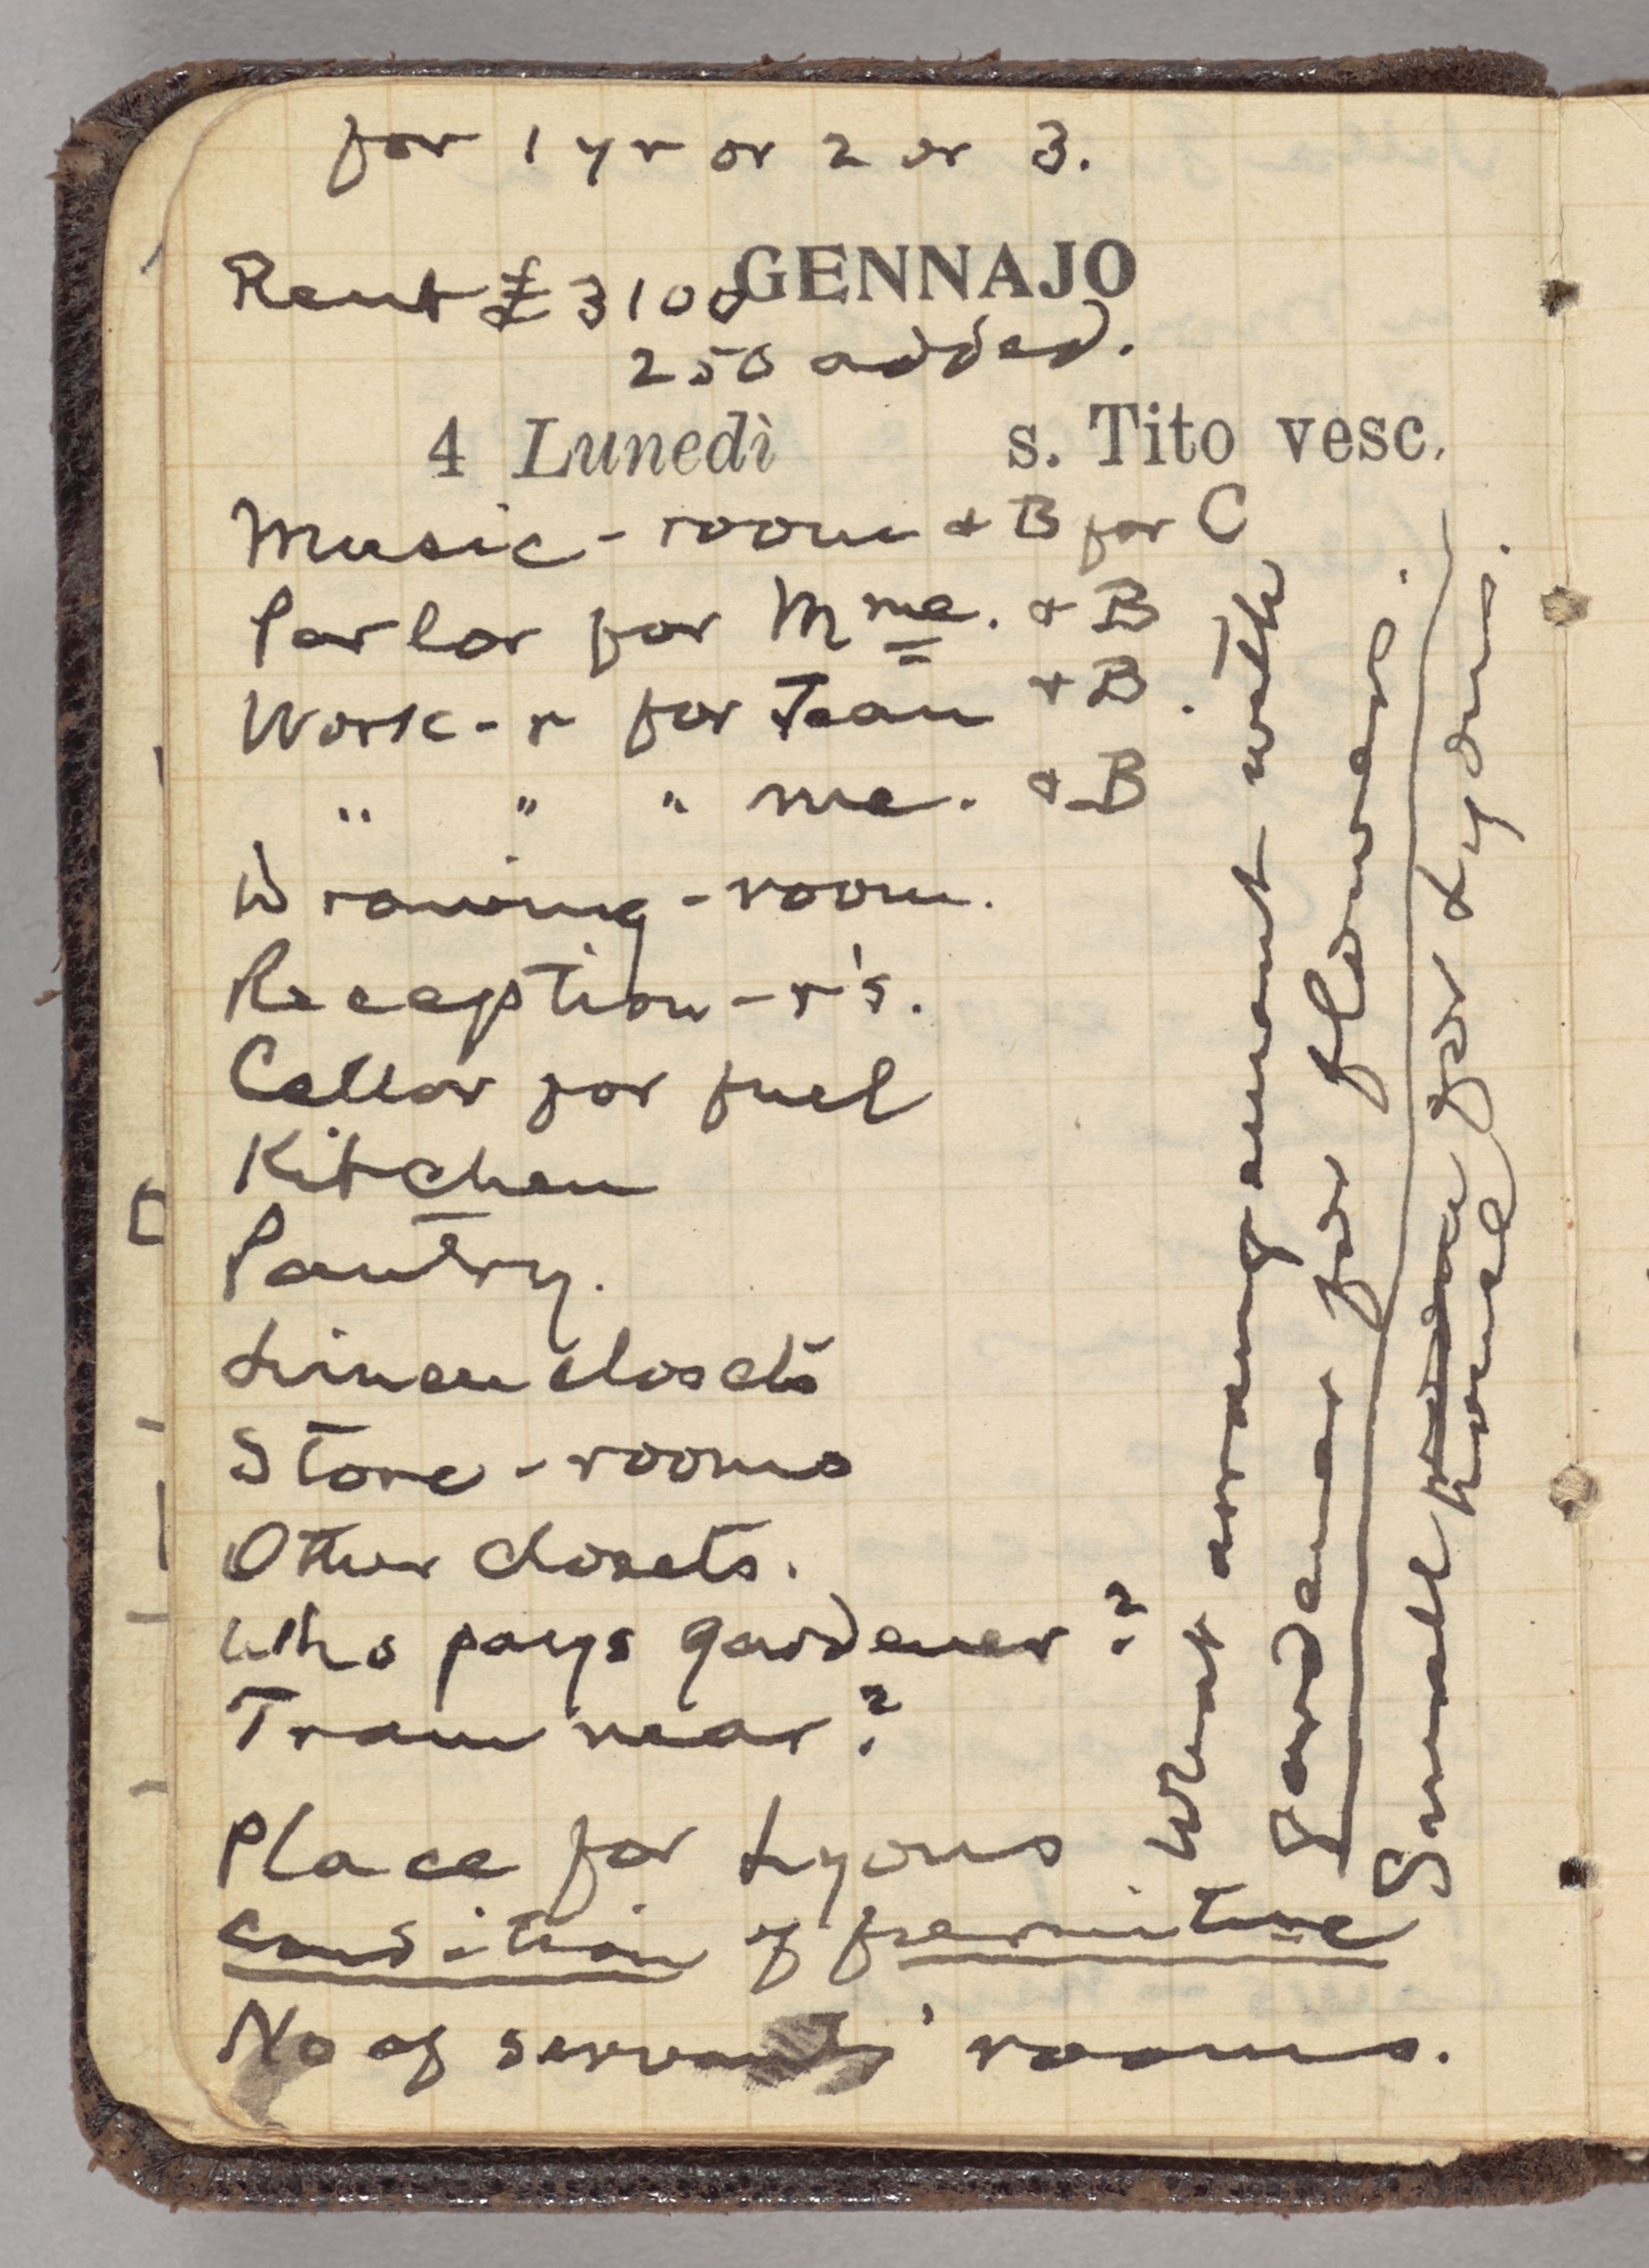 for 1 yr or 2 or 3.
GENNAJO
Rent £3100
250 added.
4 Lunedì s. Tito vesc.
Music-room & B for C
Parlor for Mme. & B
Work-r for Jean & B.
" " " me. & B
Drawing-room.
Reception-r's.
Cellar for fuel
Kitchen
Pantry.
Linen closets
Store-rooms
Other closets.
Who pays gardener?
Tram near?
Place for Lyons
Condition of furniture
No of servants' rooms.
What arrangement with
gardener for flowers.
Small house for Lyons.